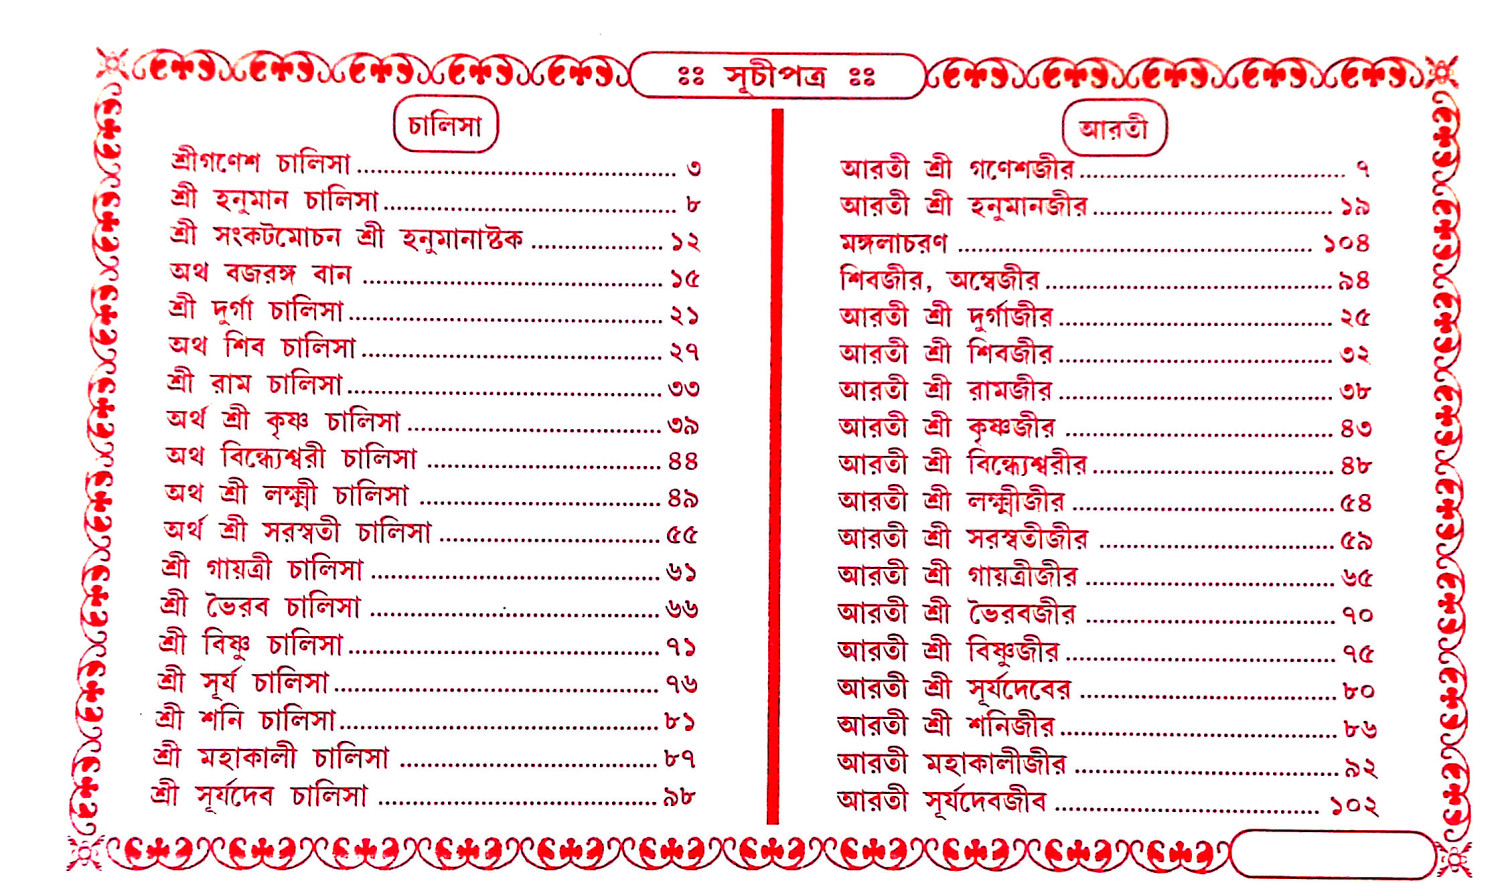 ঃঃ সূচীপত্র ঃঃ
চালিসা
শ্রীগণেশ চালিসা ........................................ ৩
শ্রী হনুমান চালিসা ........................................ ৮
শ্রী সংকটমোচন শ্রী হনুমানাষ্টক .................. ১২
অথ বজরঙ্গ বান ........................................ ১৫
শ্রী দুর্গা চালিসা ........................................ ২১
অথ শিব চালিসা ........................................ ২৭
শ্রী রাম চালিসা ........................................ ৩৩
অর্থ শ্রী কৃষ্ণ চালিসা .................................. ৩৯
অথ বিন্ধ্যেশ্বরী চালিসা ................................ ৪৪
অথ শ্রী লক্ষ্মী চালিসা ................................. ৪৯
অর্থ শ্রী সরস্বতী চালিসা .............................. ৫৫
শ্রী গায়ত্রী চালিসা ...................................... ৬১
শ্রী ভৈরব চালিসা ...................................... ৬৬
শ্রী বিষ্ণু চালিসা ........................................ ৭১
শ্রী সূর্য চালিসা ........................................ ৭৬
শ্রী শনি চালিসা ........................................ ৮১
শ্রী মহাকালী চালিসা ................................... ৮৭
শ্রী সূর্যদেব চালিসা .................................... ৯৮
আরতী
আরতী শ্রী গণেশজীর .................................. ৭
আরতী শ্রী হনুমানজীর ................................ ১৯
মঙ্গলাচরণ .............................................. ১০৪
শিবজীর, অম্বেজীর ..................................... ৯৪
আরতী শ্রী দুর্গাজীর ................................... ২৫
আরতী শ্রী শিবজীর ................................... ৩২
আরতী শ্রী রামজীর ................................... ৩৮
আরতী শ্রী কৃষ্ণজীর ................................... ৪৩
আরতী শ্রী বিন্ধ্যেশ্বরীর ............................... ৪৮
আরতী শ্রী লক্ষ্মীজীর ................................. ৫৪
আরতী শ্রী সরস্বতীজীর .............................. ৫৯
আরতী শ্রী গায়ত্রীজীর ................................ ৬৫
আরতী শ্রী ভৈরবজীর ................................ ৭০
আরতী শ্রী বিষ্ণুজীর .................................. ৭৫
আরতী শ্রী সূর্যদেবের ................................. ৮০
আরতী শ্রী শনিজীর ................................... ৮৬
আরতী মহাকালীজীর ................................. ৯২
আরতী সূর্যদেবজীব .................................. ১০২